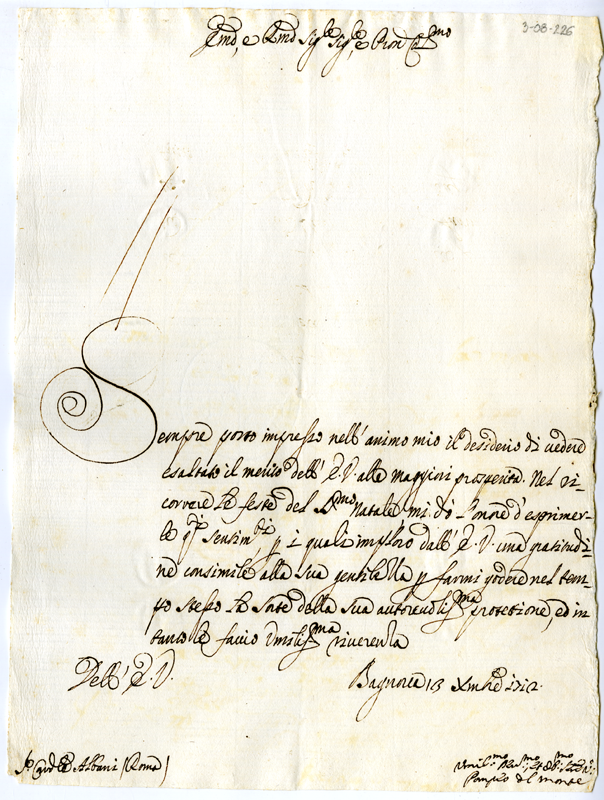 3-08-226
Emo, e Rmo Sigre Sigre, e Pron Colmo
Sempre porto impresso nell' animo mio il desiderio di vedere
esaltato il merito dell' E. V. alle maggiori prosperità. Nel ri-
correre le feste del SSmo Natale mi dò l'onore d'esprimer-
le qti sentimti p i quali imploro dall' E. V. una gratitudi-
ne consimile alla sua gentilezza p farmi godere nel tem-
po stesso le grate della sua autorevolissma protettione, ed in-
tanto le faccio umilissma riverenza
Dell' E. V.
Bagnorea 13 Xmbre 1712.
Sr Cardle Albani (Roma)
Umilmo Devmo et Obbmo Serre
Pompeo del Monte